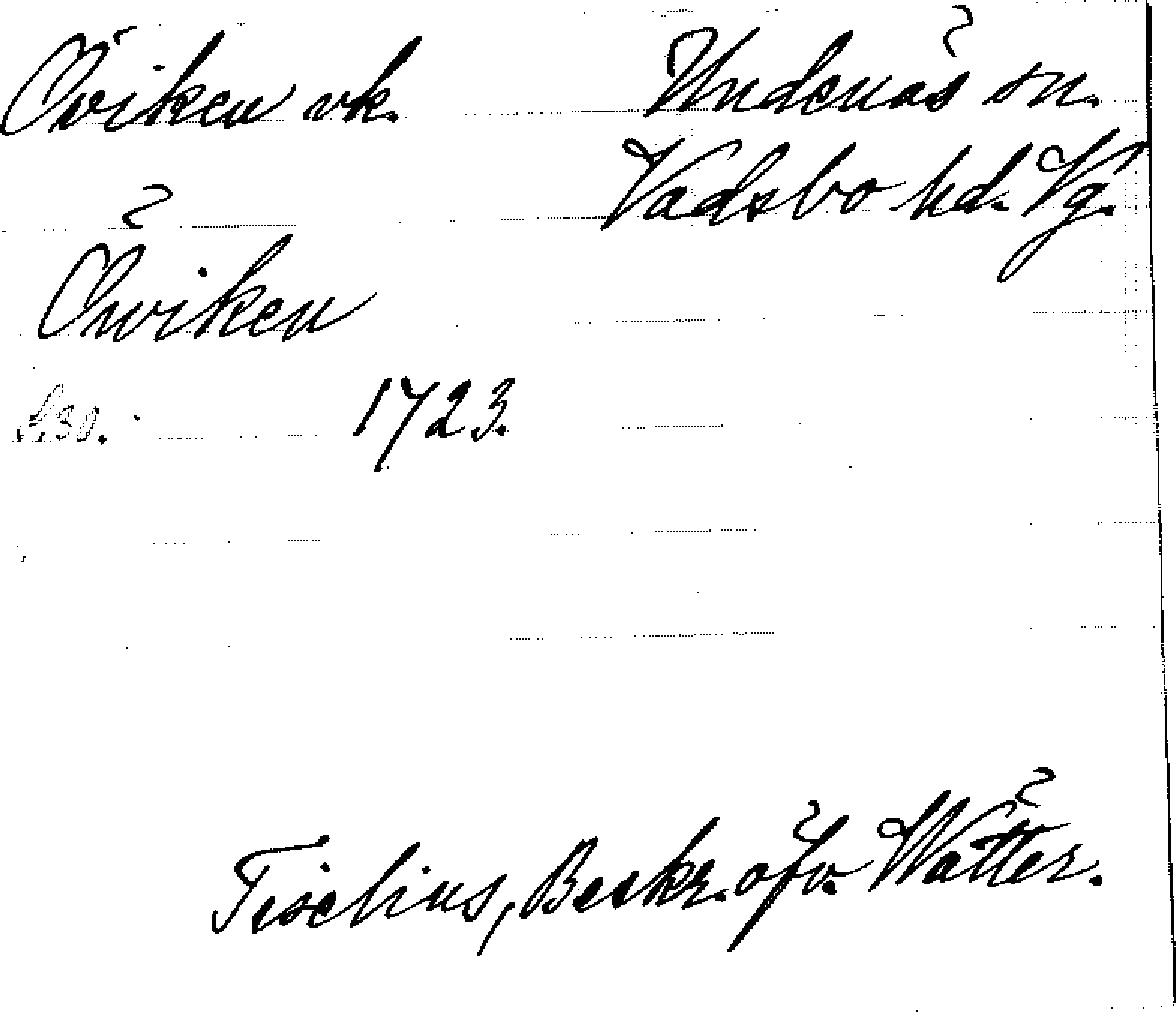 Öviken vk. Undenäs sn.
Vadsbo hd. Vg.
Öwiken
S.30. 1723.
Tiselius, Beskr. öfv. Wätter.